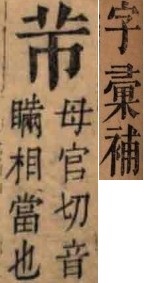 字彙補
芇
母官切音
瞞相當也